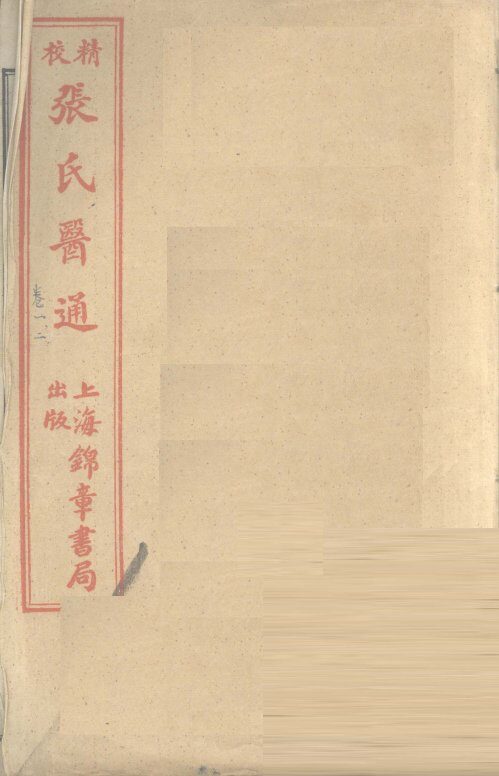 精校
張氏醫通
卷一、二
上海錦章書局
出版